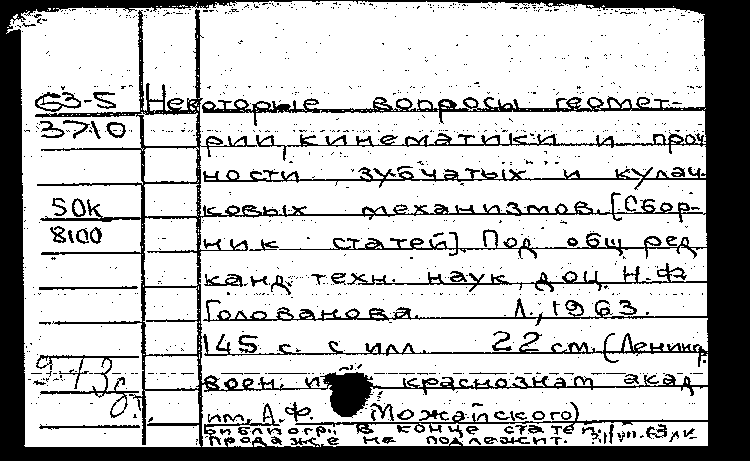 63-5 Некоторые вопросы геомет-
3710
рии, кинематики и проч
ности зубчатых и кулач-
50к ковых механизмов. [Сбор-
8100 ник статей]. Под общ ред
канд. техн. наук, доц. Н.Ф
Голованова. Л., 1963.
145 с. с илл. 22 см. (Ленингр.
воен. краснознам акад.
им. А.Ф. Можайского)
Библиогр. в конце статей.
Продаже не подлежит.